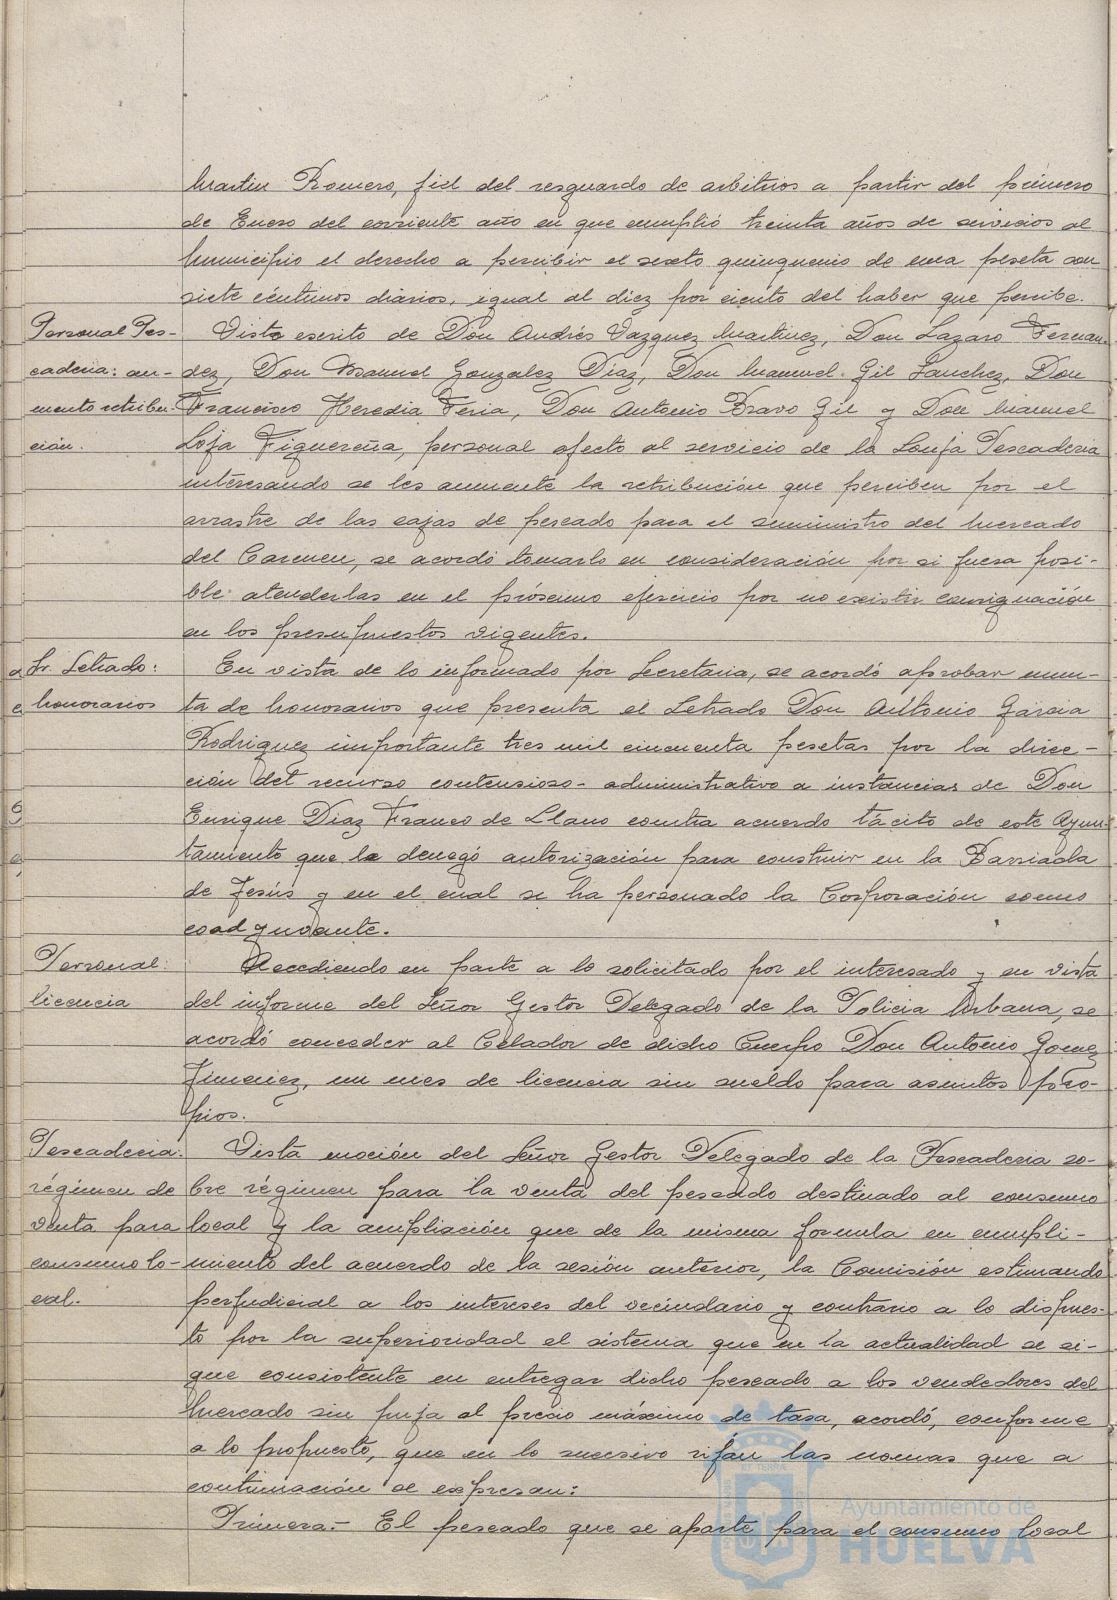 Martin Romero, fiel del resguardo de arbitrios a partir del primero
de Enero del corriente año en que cumplió treinta años de servicios al
Municipio el derecho a percibir el sexto quinquenio de una peseta con
siete céntimos diarios, igual al diez por ciento del haber que percibe.
Personal Pes-
caderia: au-
mento retribu-
ción.
Visto escrito de Don Andrés Vazquez Martinez, Don Lazaro Fernan-
dez, Don Manuel Gonzalez Diaz, Don Manuel Gil Sanchez, Don
Francisco Heredia Feria, Don Antonio Bravo Gil y Don Manuel
Loja Figuereña, personal afecto al servicio de la Lonja Pescaderia
interesando se les aumente la retribución que perciben por el
arrastre de las cajas de pescado para el suministro del Mercado
del Carmen, se acordó tomarlo en consideración por si fuera posi-
ble atenderlas en el próximo ejercicio por no existir consignación
en los presupuestos vigentes.
Sr. Letrado:
honorarios
En vista de lo informado por Secretaria, se acordó aprobar minu-
ta de honorarios que presenta el Letrado Don António Garcia
Rodriguez importante tres mil cincuenta pesetas por la direc-
ción del recurso contensioso-administrativo a instancias de Don
Enrique Diaz Franco de Llano contra acuerdo tácito de este Ayun-
tamiento que le denegó autorización para construir en la Barriada
de Jesús y en el cual se ha personado la Corporación como
coadyuvante.
Personal:
licencia
Accediendo en parte a lo solicitado por el interesado y en vista
del informe del Señor Gestor Delegado de la Policia Urbana, se
acordó conceder al Celador de dicho Cuerpo Don Antonio Gomez
Jimenez, un mes de licencia sin sueldo para asuntos pro-
pios.
Pescaderia:
régimen de
venta para
consumo lo-
cal.
Vista moción del Señor Gestor Delegado de la Pescaderia so-
bre régimen para la venta del pescado destinado al consumo
local y la ampliación que de la misma formula en cumpli-
miento del acuerdo de la sesión anterior, la Comisión estimando
perjudicial a los intereses del vecindario y contrario a lo dispues-
to por la superioridad el sistema que en la actualidad se si-
gue consistente en entregar dicho pescado a los vendedores del
Mercado sin puja al precio máximo de tasa, acordó, conforme
a lo propuesto, que en lo sucesivo rijan las normas que a
continuación se expresan:
Primera.- El pescado que se aparte para el consumo local
Ayuntamiento de
HUELVA